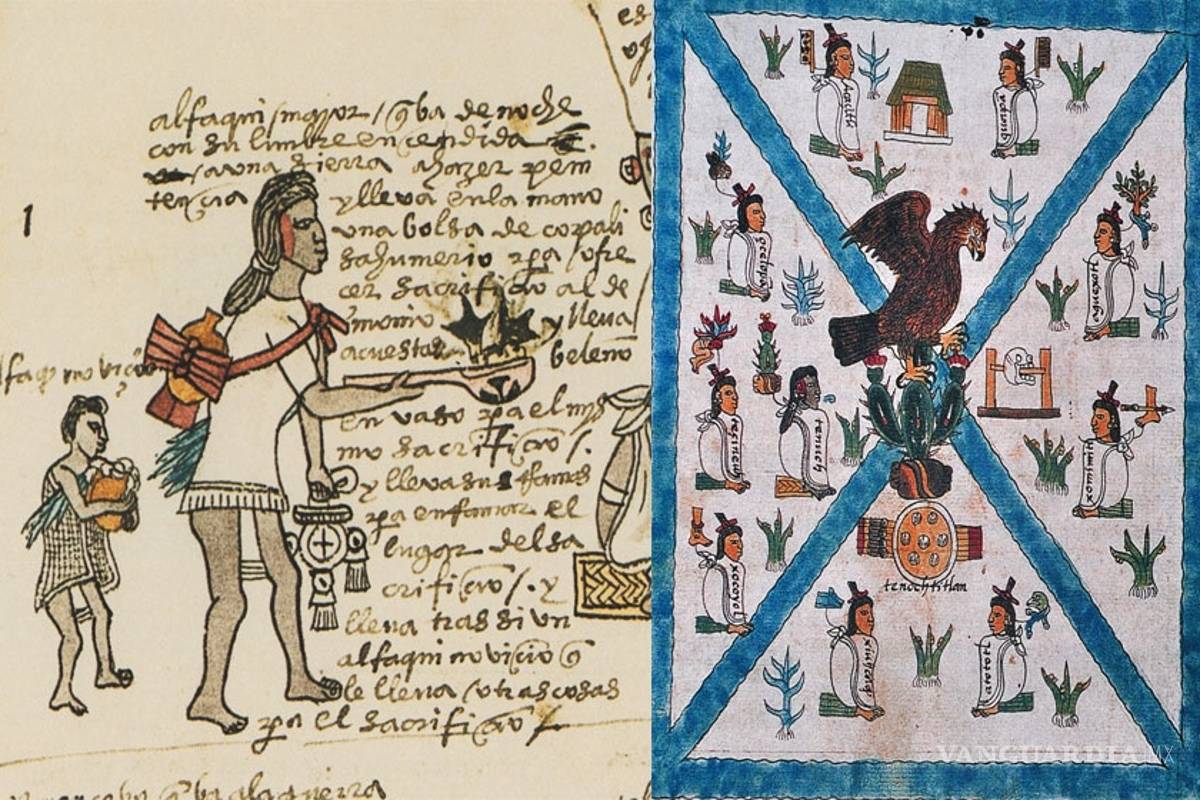 es
alfaqui mayor / q̃ va de noche
con su lumbre encendida
a una sierra a hazer peni
tençia y lleva en la mano
1
una bolsa de copali
sahumerio pa / ofre
çer sacrifiçio al de
monio y lleva
acuestas beleño
alfaqui noviçio
en vaso pa el mys
mo sacrifiçio /.
y lleva sus sonajas
pa en el
lugar del sa
crifiçio /. y
lleva tras si un
alfaqui noviçio q̃
le lleva / otras cosas
pa el sacrifiçio /
q̃ va a la guerra
acacitli
quapan
oçelopa
aguexotl
teçineuh
tenuch
xomimitl
xocoyol
tenochtitlan
xiuhcaqui
atototl
VANGUARDIA MX